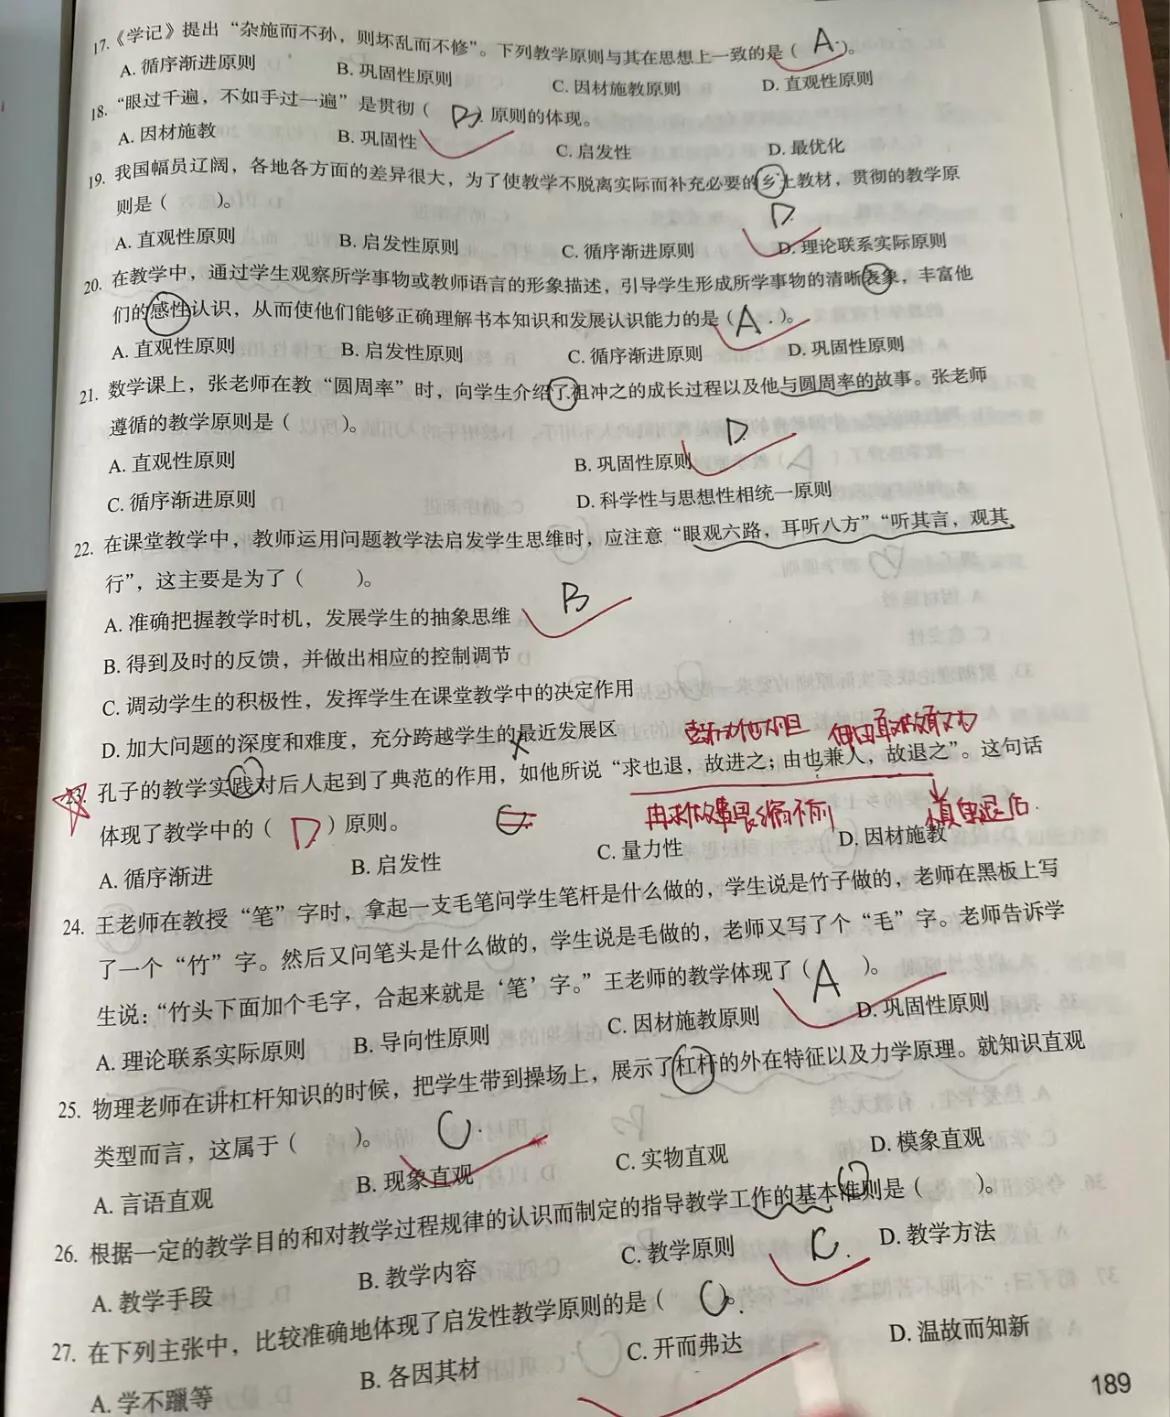 17.《学记》提出“杂施而不孙，则坏乱而不修”。下列教学原则与其在思想上一致的是（ A ）。
A. 循序渐进原则 B. 巩固性原则 C. 因材施教原则 D. 直观性原则
18. “眼过千遍，不如手过一遍”是贯彻（ B ）原则的体现。
A. 因材施教 B. 巩固性 C. 启发性 D. 最优化
19. 我国幅员辽阔，各地各方面的差异很大，为了使教学不脱离实际而补充必要的乡土教材，贯彻的教学原
则是（ ）。
D
A. 直观性原则 B. 启发性原则 C. 循序渐进原则 D. 理论联系实际原则
20. 在教学中，通过学生观察所学事物或教师语言的形象描述，引导学生形成所学事物的清晰表象，丰富他
们的感性认识，从而使他们能够正确理解书本知识和发展认识能力的是（ A ）。
A. 直观性原则 B. 启发性原则 C. 循序渐进原则 D. 巩固性原则
21. 数学课上，张老师在教“圆周率”时，向学生介绍了祖冲之的成长过程以及他与圆周率的故事。张老师
遵循的教学原则是（ ）。
D
A. 直观性原则 B. 巩固性原则
C. 循序渐进原则 D. 科学性与思想性相统一原则
22. 在课堂教学中，教师运用问题教学法启发学生思维时，应注意“眼观六路，耳听八方”“听其言，观其
行”，这主要是为了（ ）。
B
A. 准确把握教学时机，发展学生的抽象思维
B. 得到及时的反馈，并做出相应的控制调节
C. 调动学生的积极性，发挥学生在课堂教学中的决定作用
D. 加大问题的深度和难度，充分跨越学生的最近发展区
23. 孔子的教学实践对后人起到了典范的作用，如他所说“求也退，故进之；由也兼人，故退之”。这句话
体现了教学中的（ D ）原则。
A. 循序渐进 B. 启发性 C. 量力性 D. 因材施教
24. 王老师在教授“笔”字时，拿起一支毛笔问学生笔杆是什么做的，学生说是竹子做的，老师在黑板上写
了一个“竹”字。然后又问笔头是什么做的，学生说是毛做的，老师又写了个“毛”字。老师告诉学
生说：“竹头下面加个毛字，合起来就是‘笔’字。”王老师的教学体现了（ A ）。
A. 理论联系实际原则 B. 导向性原则 C. 因材施教原则 D. 巩固性原则
25. 物理老师在讲杠杆知识的时候，把学生带到操场上，展示了杠杆的外在特征以及力学原理。就知识直观
类型而言，这属于（ ）。
C
A. 言语直观 B. 现象直观 C. 实物直观 D. 模象直观
26. 根据一定的教学目的和对教学过程规律的认识而制定的指导教学工作的基本准则是（ ）。
C
A. 教学手段 B. 教学内容 C. 教学原则 D. 教学方法
27. 在下列主张中，比较准确地体现了启发性教学原则的是（ C ）。
A. 学不躐等 B. 各因其材 C. 开而弗达 D. 温故而知新
189